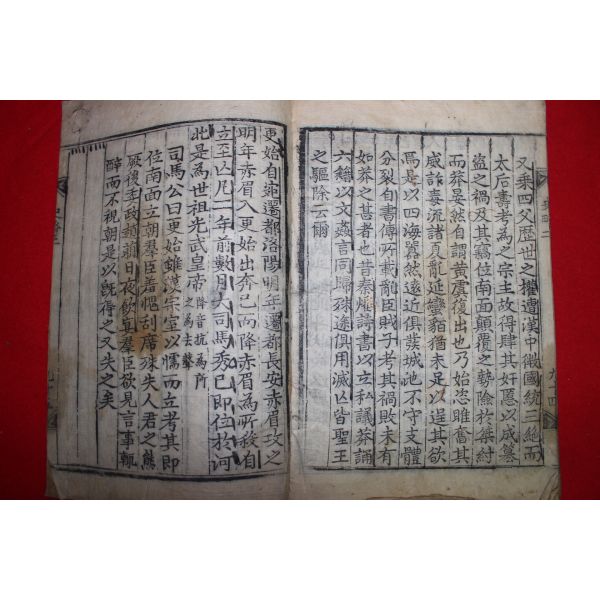 又乘四父歷世之權遭漢中微國統三絶而
太后壽考為之宗主故得肆其奸慝以成簒
盜之禍及其竊位南面顚覆之勢險於桀紂
而莽晏然自謂黃虞復出也乃始恣睢奮其
威詐毒流諸夏亂延蠻貊猶未足以逞其欲
焉是以四海囂然遠近俱發城池不守支體
分裂自書傳所載亂臣賊子考其禍敗未有
如莽之甚者也昔秦燔詩書以立私議莽誦
六藝以文姦言同歸殊途俱用滅亡皆聖王
之驅除云爾
更始自宛遷都洛陽明年遷都長安赤眉攻之
明年赤眉入更始出奔已向降赤眉為所殺自
立至亡凡二年前數月大司馬秀已即位於河
此是為世祖光武皇帝降音杭為所之為去聲
司馬公曰更始雖漢宗室以懦而立考其即
位南面立朝羣臣羞愧刮席殊失人君之態
厥後委政趙萠日夜飮宴羣臣欲見言事輒
醉而不視朝是以旣得之又失之矣